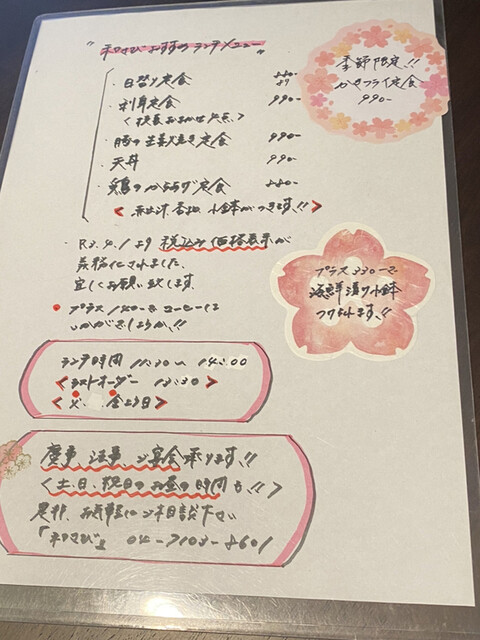 "和さび おすすめ ランチメニュー"
季節限定!!
かきフライ定食
990-
・日替り定食 880-より
・刺身定食 990-
・豚の生姜焼き定食 990-
・天丼 990-
・鶏のからあげ定食 880-
＜赤出汁 香物 小鉢がつきます!!＞
・R3.4.1より 税込み価格表示が
義務化されました
宜しくお願い致します
プラス330-で
海鮮漬け小鉢
つけられます!!
・プラス 140-で コーヒーは
いかがでしょうか!!
ランチ時間 11:30〜14:00
＜ラストオーダー 13:30＞
慶事、法事、ご宴会承ります!!
＜土、日、祝日のお昼の時間も!!＞
是非、お気軽にご相談下さい
「和さび」 04-7103-8601